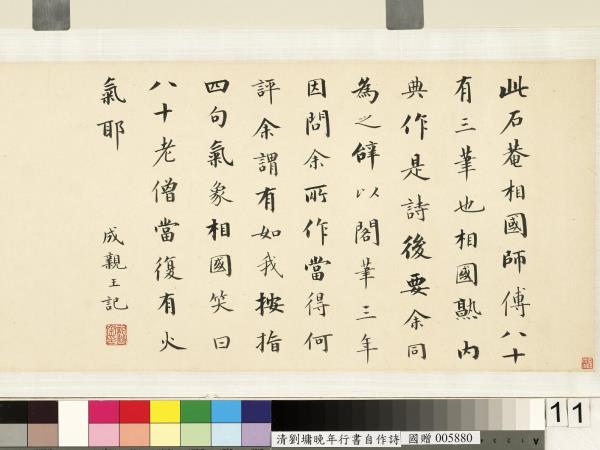 此石菴相國師傅八十
有三筆也相國熟內
典作是詩後要余同
為之辭以閣筆三年
因問余所作當得何
評余謂有如我按指
四句氣象相國笑曰
八十老僧當復有火
氣耶
成親王記
11
清劉墉晚年行書自作詩 國贈 005880